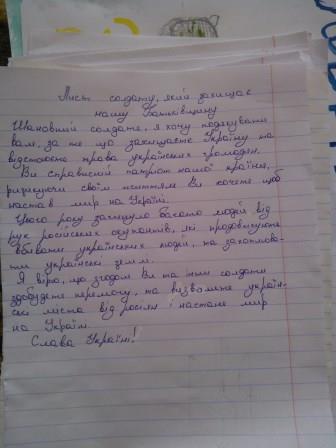 Лист солдату, який захищає
нашу Батьківщину
Шановний солдате, я хочу подякувати
вам, за те що захищаєте Україну та
відстоюєте права українських громадян.
Ви справжній патріот нашої країни,
ризикуючи своїм життям Ви хочете щоб
настав мир на Україні.
Цього року загинуло багато людей від
рук російських окупантів, які продовжують
вбивати українських людей, та захоплюва-
ти українські землі.
Я вірю, що згодом Ви та інші солдати
здобудете перемогу, та визволите україн-
ські міста від росіян і настане мир
на Україні.
Слава Україні!